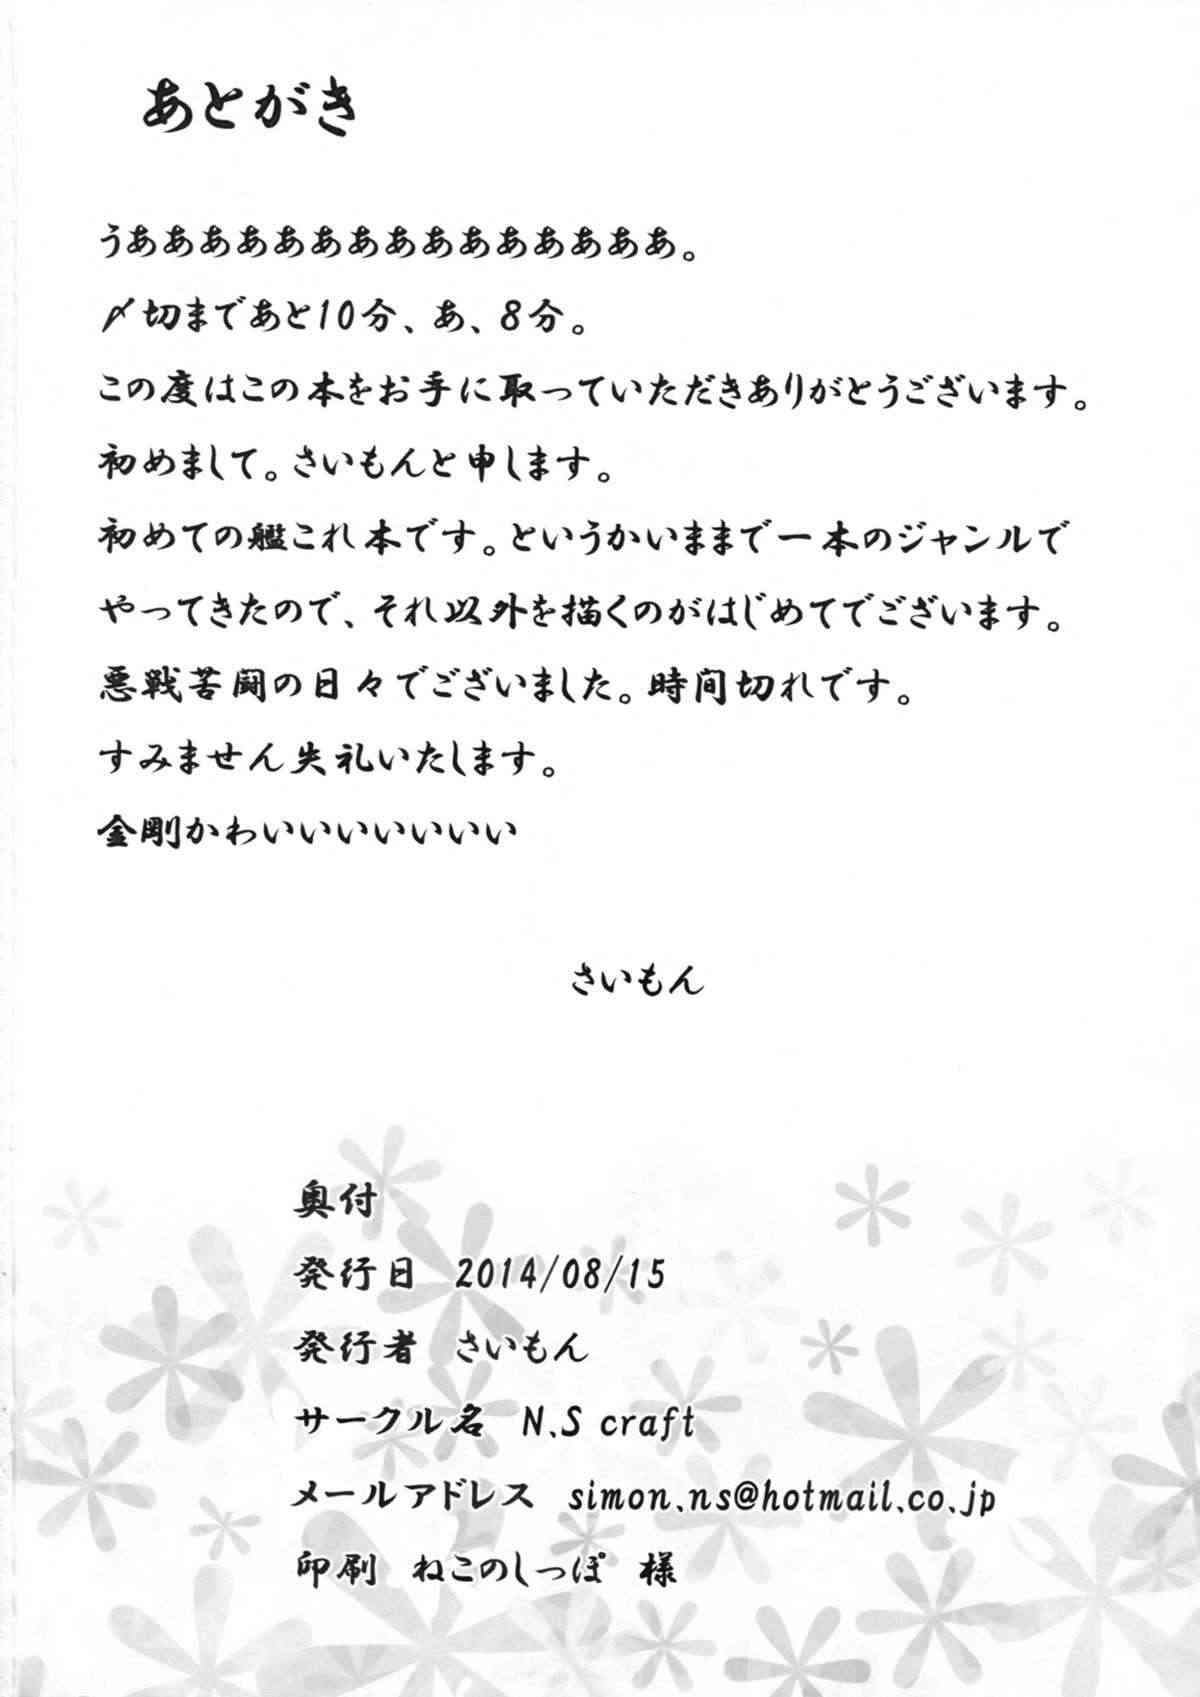 あとがき
うあああああああああああああああ。
〆切まであと10分、あ、8分。
この度はこの本をお手に取っていただきありがとうございます。
初めまして。さいもんと申します。
初めての艦これ本です。というかいままで一本のジャンルで
やってきたので、それ以外を描くのがはじめてでございます。
悪戦苦闘の日々でございました。時間切れです。
すみません失礼いたします。
金剛かわいいいいいいいい
さいもん
奥付
発行日 2014/08/15
発行者 さいもん
サークル名 N.S craft
メールアドレス simon.ns@hotmail.co.jp
印刷 ねこのしっぽ 様